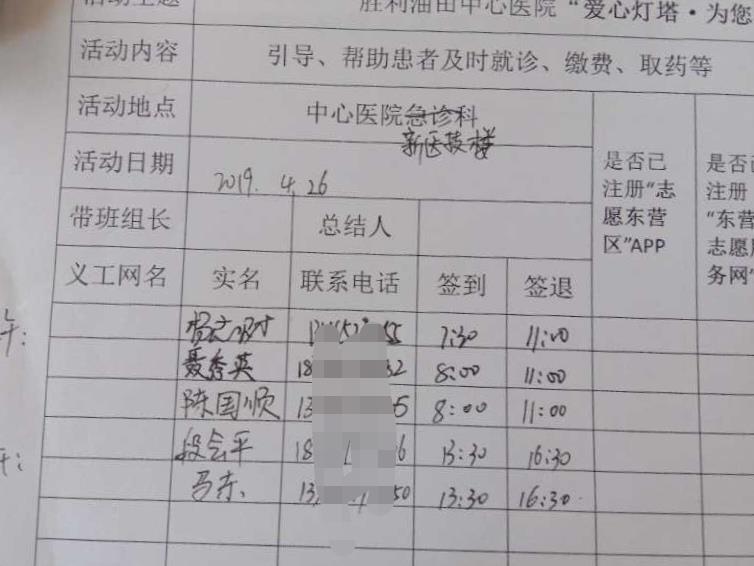 活动主题 胜利油田中心医院“爱心灯塔·为您
活动内容 引导、帮助患者及时就诊、缴费、取药等
活动地点 中心医院急诊科
新医技楼
活动日期 2019.4.26
是否已注册“志愿东营区”APP
是否已注册“东营志愿服务网”
带班组长 总结人
义工网名 实名 联系电话 签到 签退
7:30 11:00
聂秀英 18 32 8:00 11:00
陈国顺 13 5 8:00 11:00
段会平 18 6 13:30 16:30
马东 13 50 13:30 16:30